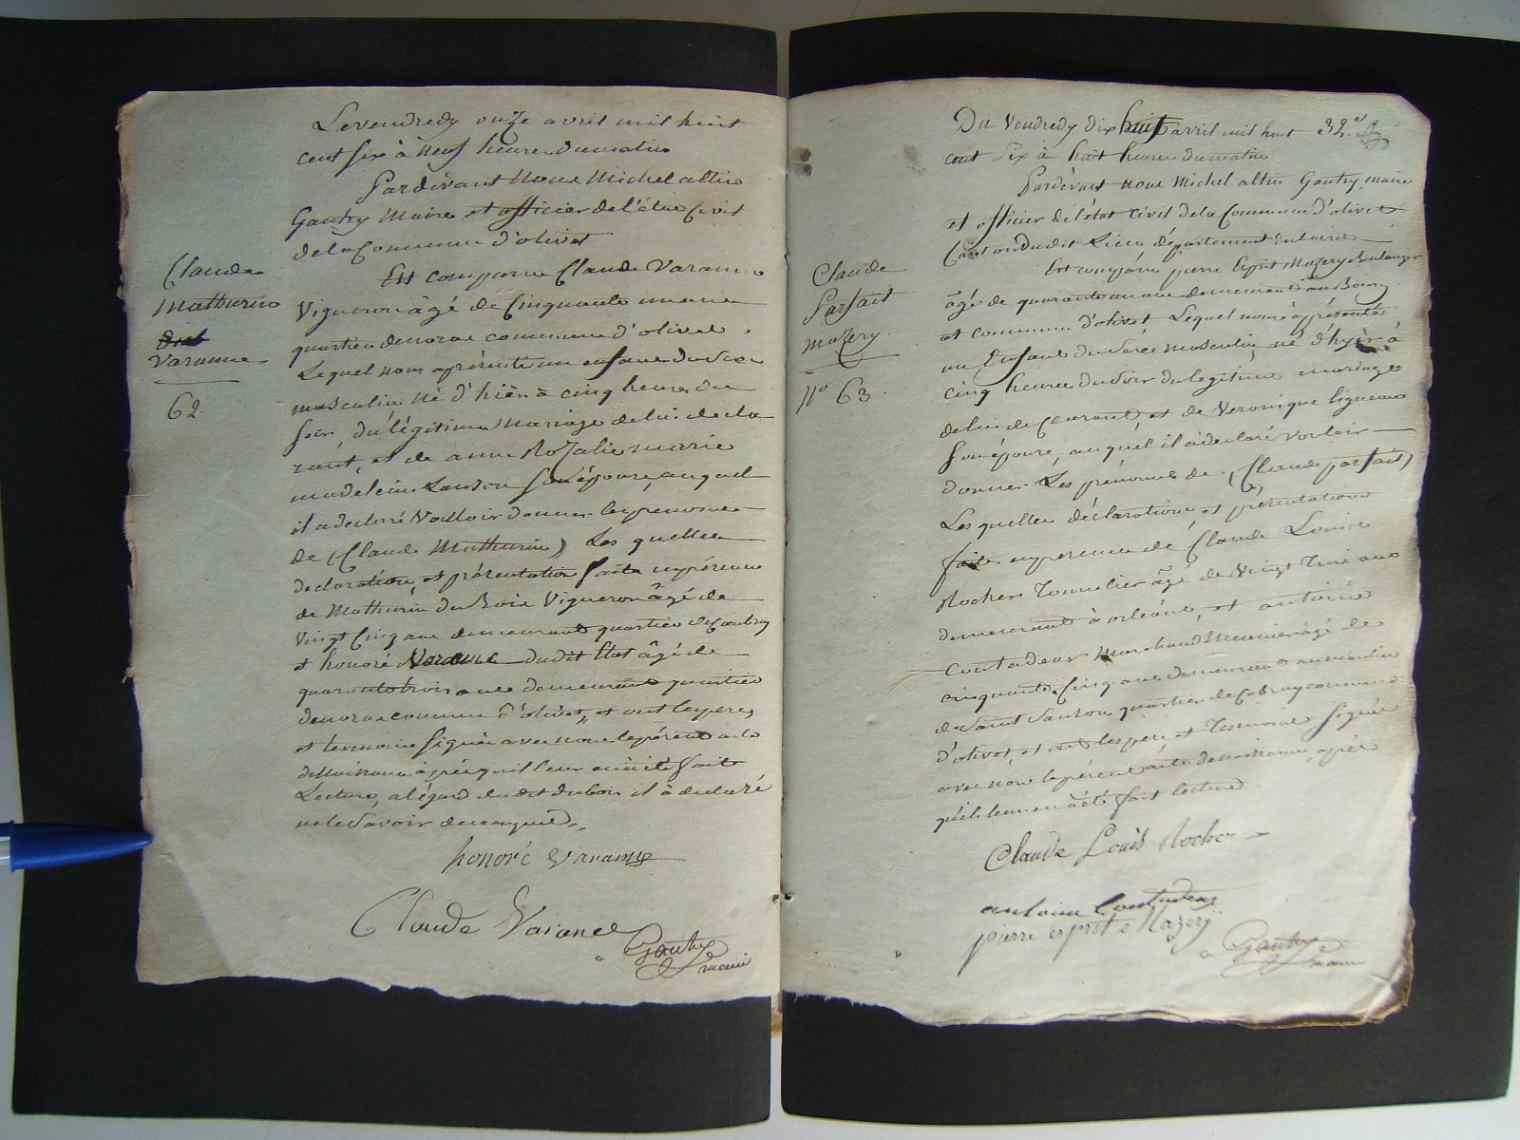 Le vendredy onze avril mil huit
cent six à neuf heures du matin
Pardevant nous Michel altin
Gautry Maire et officier de l'état Civil
de la Commune d'olivet
Claude
Mathurin
Varanne
62
Est comparu Claude Varanne
Vigneron âgé de Cinquante un ans
quartier de noras commune d'olivet
Lequel nous a présenté un enfant du sexe
masculin né d'hièr à cinq heures du
soir, du légitime Mariage de lui décla
rant, et de anne Rozalie marie
madeleine Landon Son épouse, auquel
il a déclaré Vouloir donner les prenoms
de (Claude Mathurin) Les quelles
declaration et présentation faite en présence
de Mathurin du Bois Vigneron âgé de
Vingt Cinq ans demeurant quartier de Caubray
et honoré Varanne dudit Etat âgé de
quarante trois ans demeurant quartier
de noras commune d'olivet, et ont les pere
et temoins signés avec nous le présent acte
de Naissance après qu'il leur en a été fait
Lecture, a l'égard du dit dubois il à déclaré
ne le savoir de ce enquis
honoré Varanne
Claude Varanne
Gautry
maire
Du Vendredy dix huit avril mil huit 32
cent Six à huit heures du matin
Pardevant nous Michel altin Gautry maire
et officier de l'état Civil de la Commune d'olivet
Canton dudit Lieu département du loiret
Claude
Parfait
mazery
N° 63
Est comparu pierre Esprit Mazery Boulanger
âgé de quarante un ans demeurant au Bourg
et commune d'olivet Lequel nous à présenté
un Enfant du sexe masculin, né d'hyèr à
cinq heures du soir du legitime mariage
de lui de Clarant, et de Veronique ligneau
Son épouse, auquel il a déclaré vouloir
donner Les prénoms de (Claude parfait)
Les quelles déclaration et présentation
faite en presence de Claude Louis
Rocher Tonnelier âgé de Vingt Trois ans
demeurant à orléans, et antoine
Contadeur Marchand âgé de
cinquante Cinq ans demeurant au moulin
de Saint Santin quartier de Caubray commune
d'olivet, et ont les pere et Temoins signés
avec nous le présent acte de naissance, après
qu'il leur en à été fait lecture
Claude Louis Rocher
antoine Contadeur
pierre esprit Mazery
Gautry
maire